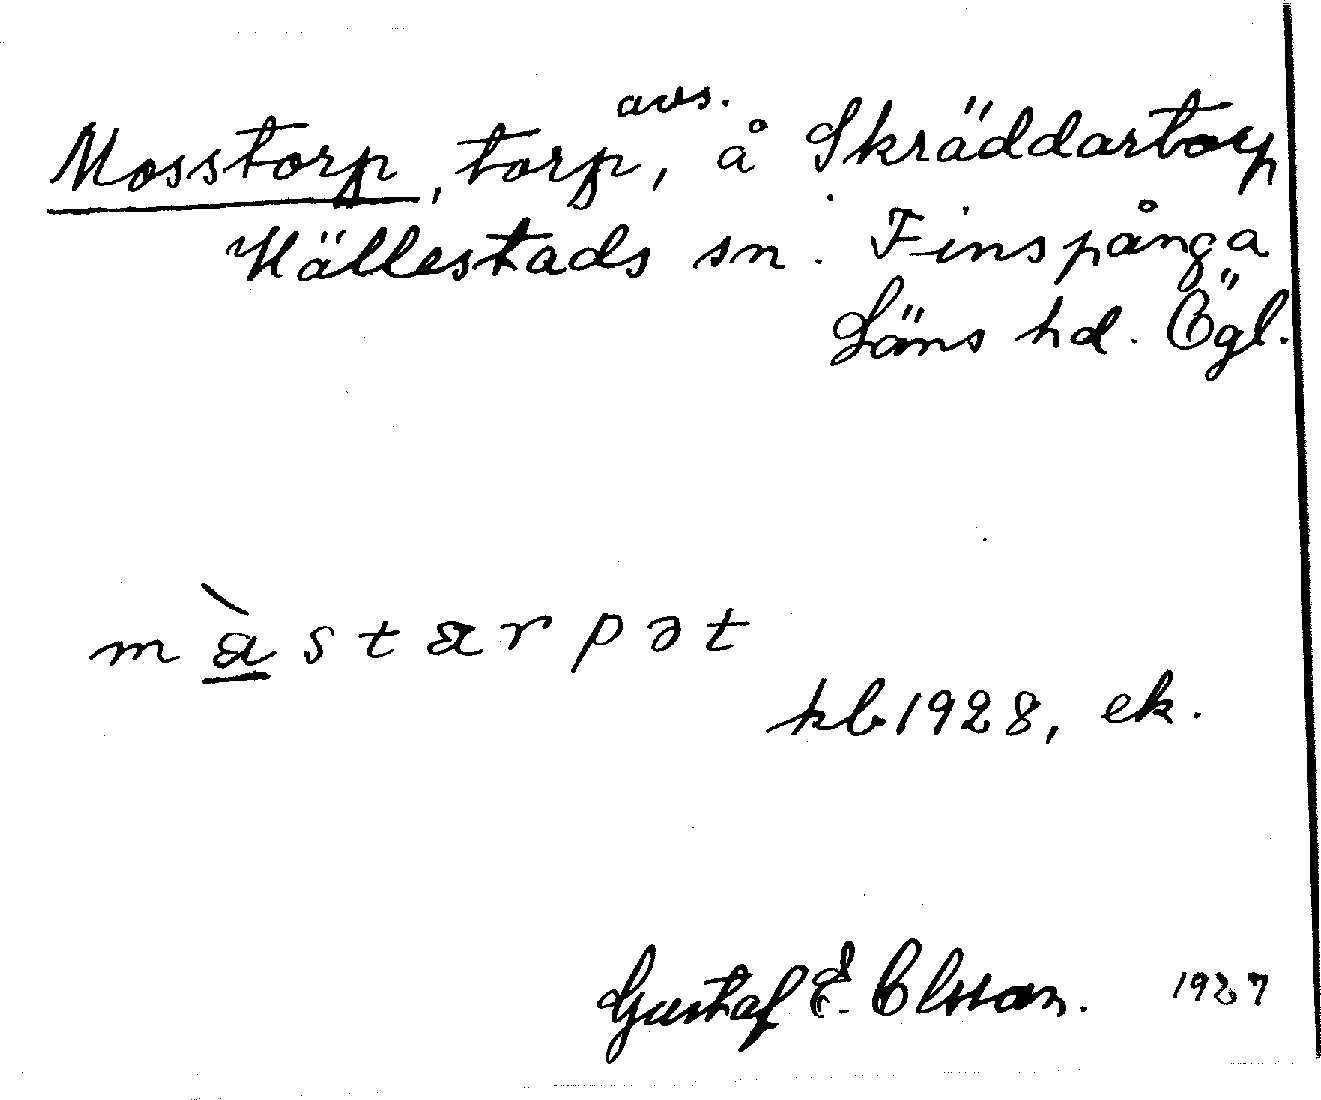 Mosstorp, torp, avs. å Skräddartorp
Hällestads sn. Finspånga
Läns hd. Ögl.
màstarpət
kb 1928, ek.
Gustaf E. Olsson. 1927